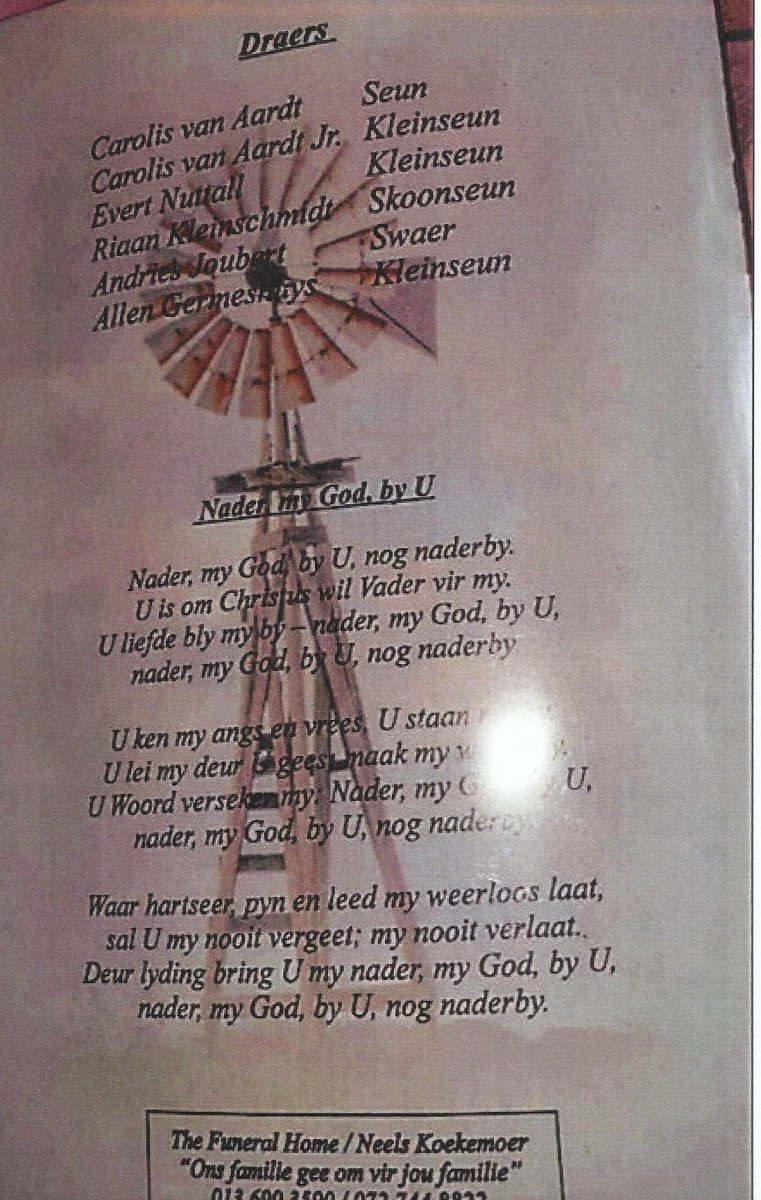 Draers
Carolis van Aardt Seun
Carolis van Aardt Jr. Kleinseun
Evert Nuttall Kleinseun
Riaan Kleinschmidt Skoonseun
Andries Joubert Swaer
Allen Kleinseun
Nader, my God, by U
Nader, my God, by U, nog naderby.
U is om Christus wil Vader vir my.
U liefde bly my by – nader, my God, by U,
nader, my God, by U, nog naderby
U ken my angs en vrees, U staan
U lei my deur U gees, maak my
U Woord verseker my: Nader, my U,
nader, my God, by U, nog naderby
Waar hartseer, pyn en leed my weerloos laat,
sal U my nooit vergeet; my nooit verlaat..
Deur lyding bring U my nader, my God, by U,
nader, my God, by U, nog naderby.
The Funeral Home / Neels Koekemoer
"Ons familie gee om vir jou familie"